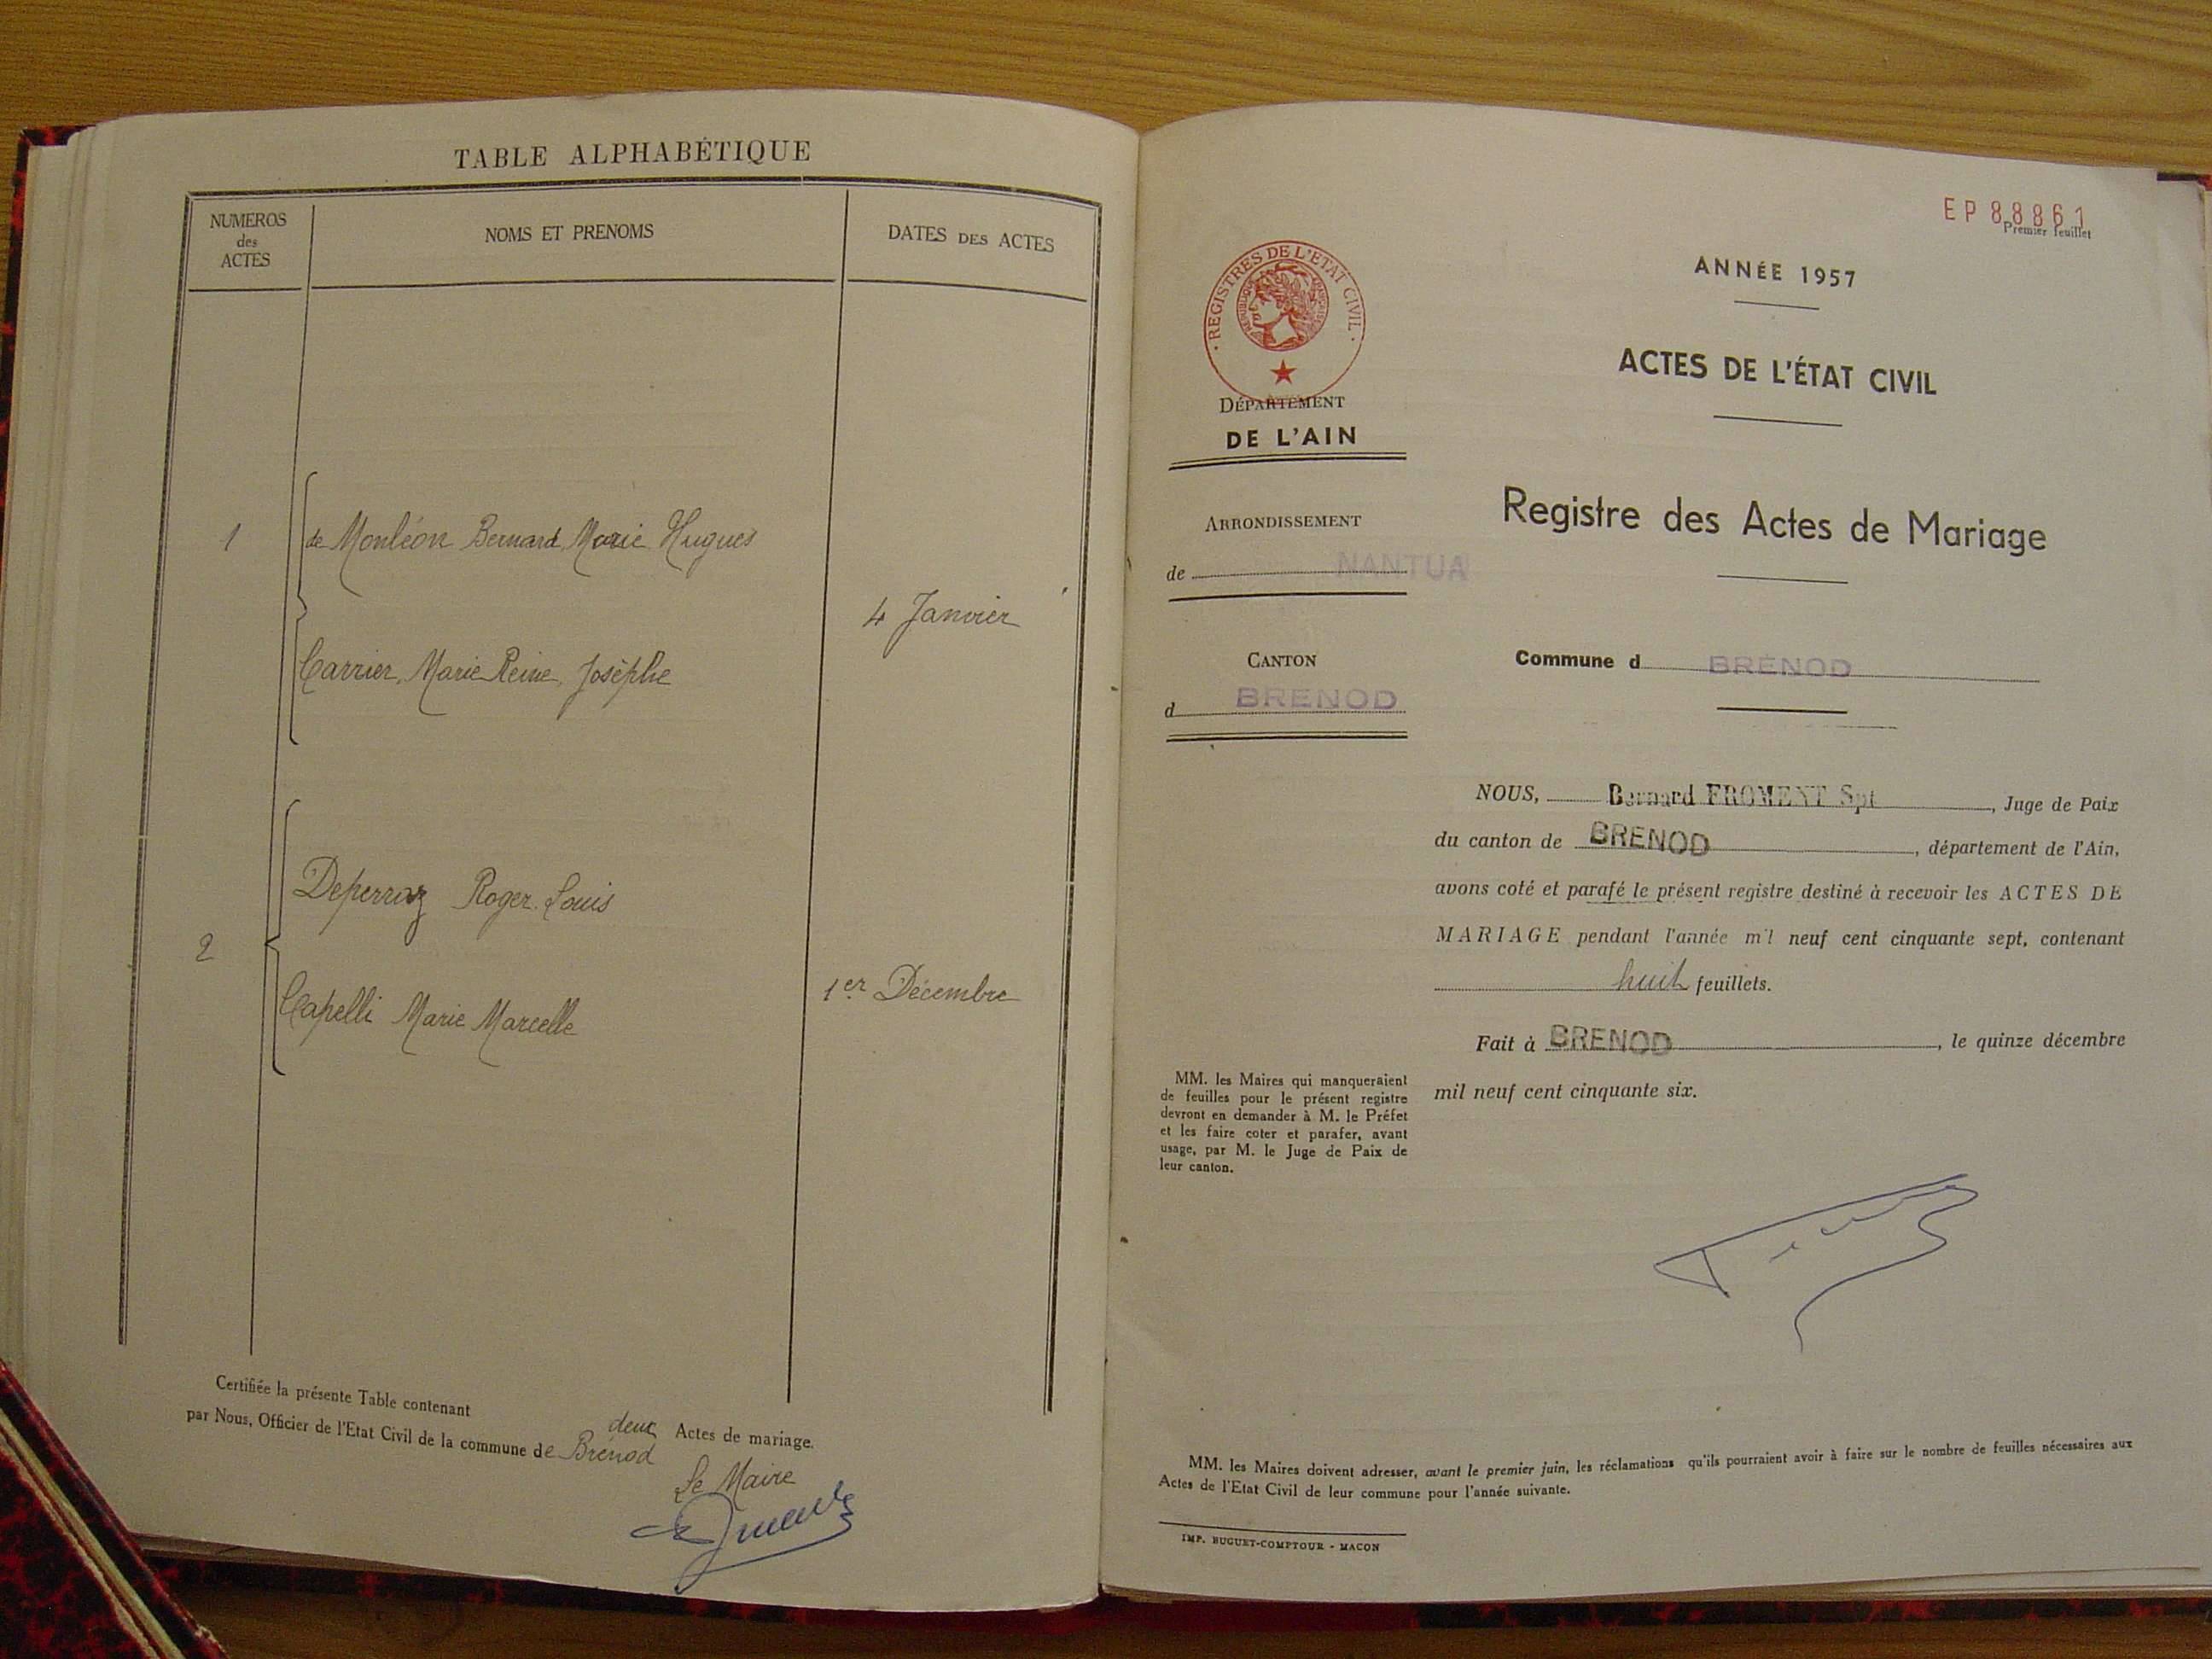 TABLE ALPHABÉTIQUE
NUMEROS
des
ACTES
NOMS ET PRENOMS
DATES DES ACTES
1
de Monléon Bernard, Marie, Hugues
4 Janvier
Carrier, Marie Reine, Josèphe
Deperraz Roger Louis
2
1er Décembre
Capelli Marie Marcelle
Certifiée la présente Table contenant deux Actes de mariage.
par Nous, Officier de l'Etat Civil de la commune de Brénod
Le Maire
EP 88861
Premier feuillet
ANNÉE 1957
REGISTRES DE L'ETAT CIVIL
REPUBLIQUE FRANÇAISE
ACTES DE L'ÉTAT CIVIL
DÉPARTEMENT
DE L'AIN
Registre des Actes de Mariage
ARRONDISSEMENT
de NANTUA
CANTON
d BRENOD
Commune d BRÉNOD
NOUS, Bernard FROMENT Spt, Juge de Paix
du canton de BRENOD, département de l'Ain,
avons coté et parafé le présent registre destiné à recevoir les ACTES DE
MARIAGE pendant l'année mil neuf cent cinquante sept, contenant
huit feuillets.
Fait à BRENOD, le quinze décembre
mil neuf cent cinquante six.
MM. les Maires qui manqueraient
de feuilles pour le présent registre
devront en demander à M. le Préfet
et les faire coter et parafer, avant
usage, par M. le Juge de Paix de
leur canton.
MM. les Maires doivent adresser, avant le premier juin, les réclamations qu'ils pourraient avoir à faire sur le nombre de feuilles nécessaires aux
Actes de l'Etat Civil de leur commune pour l'année suivante.
IMP. BUGUET-COMPTOUR - MACON